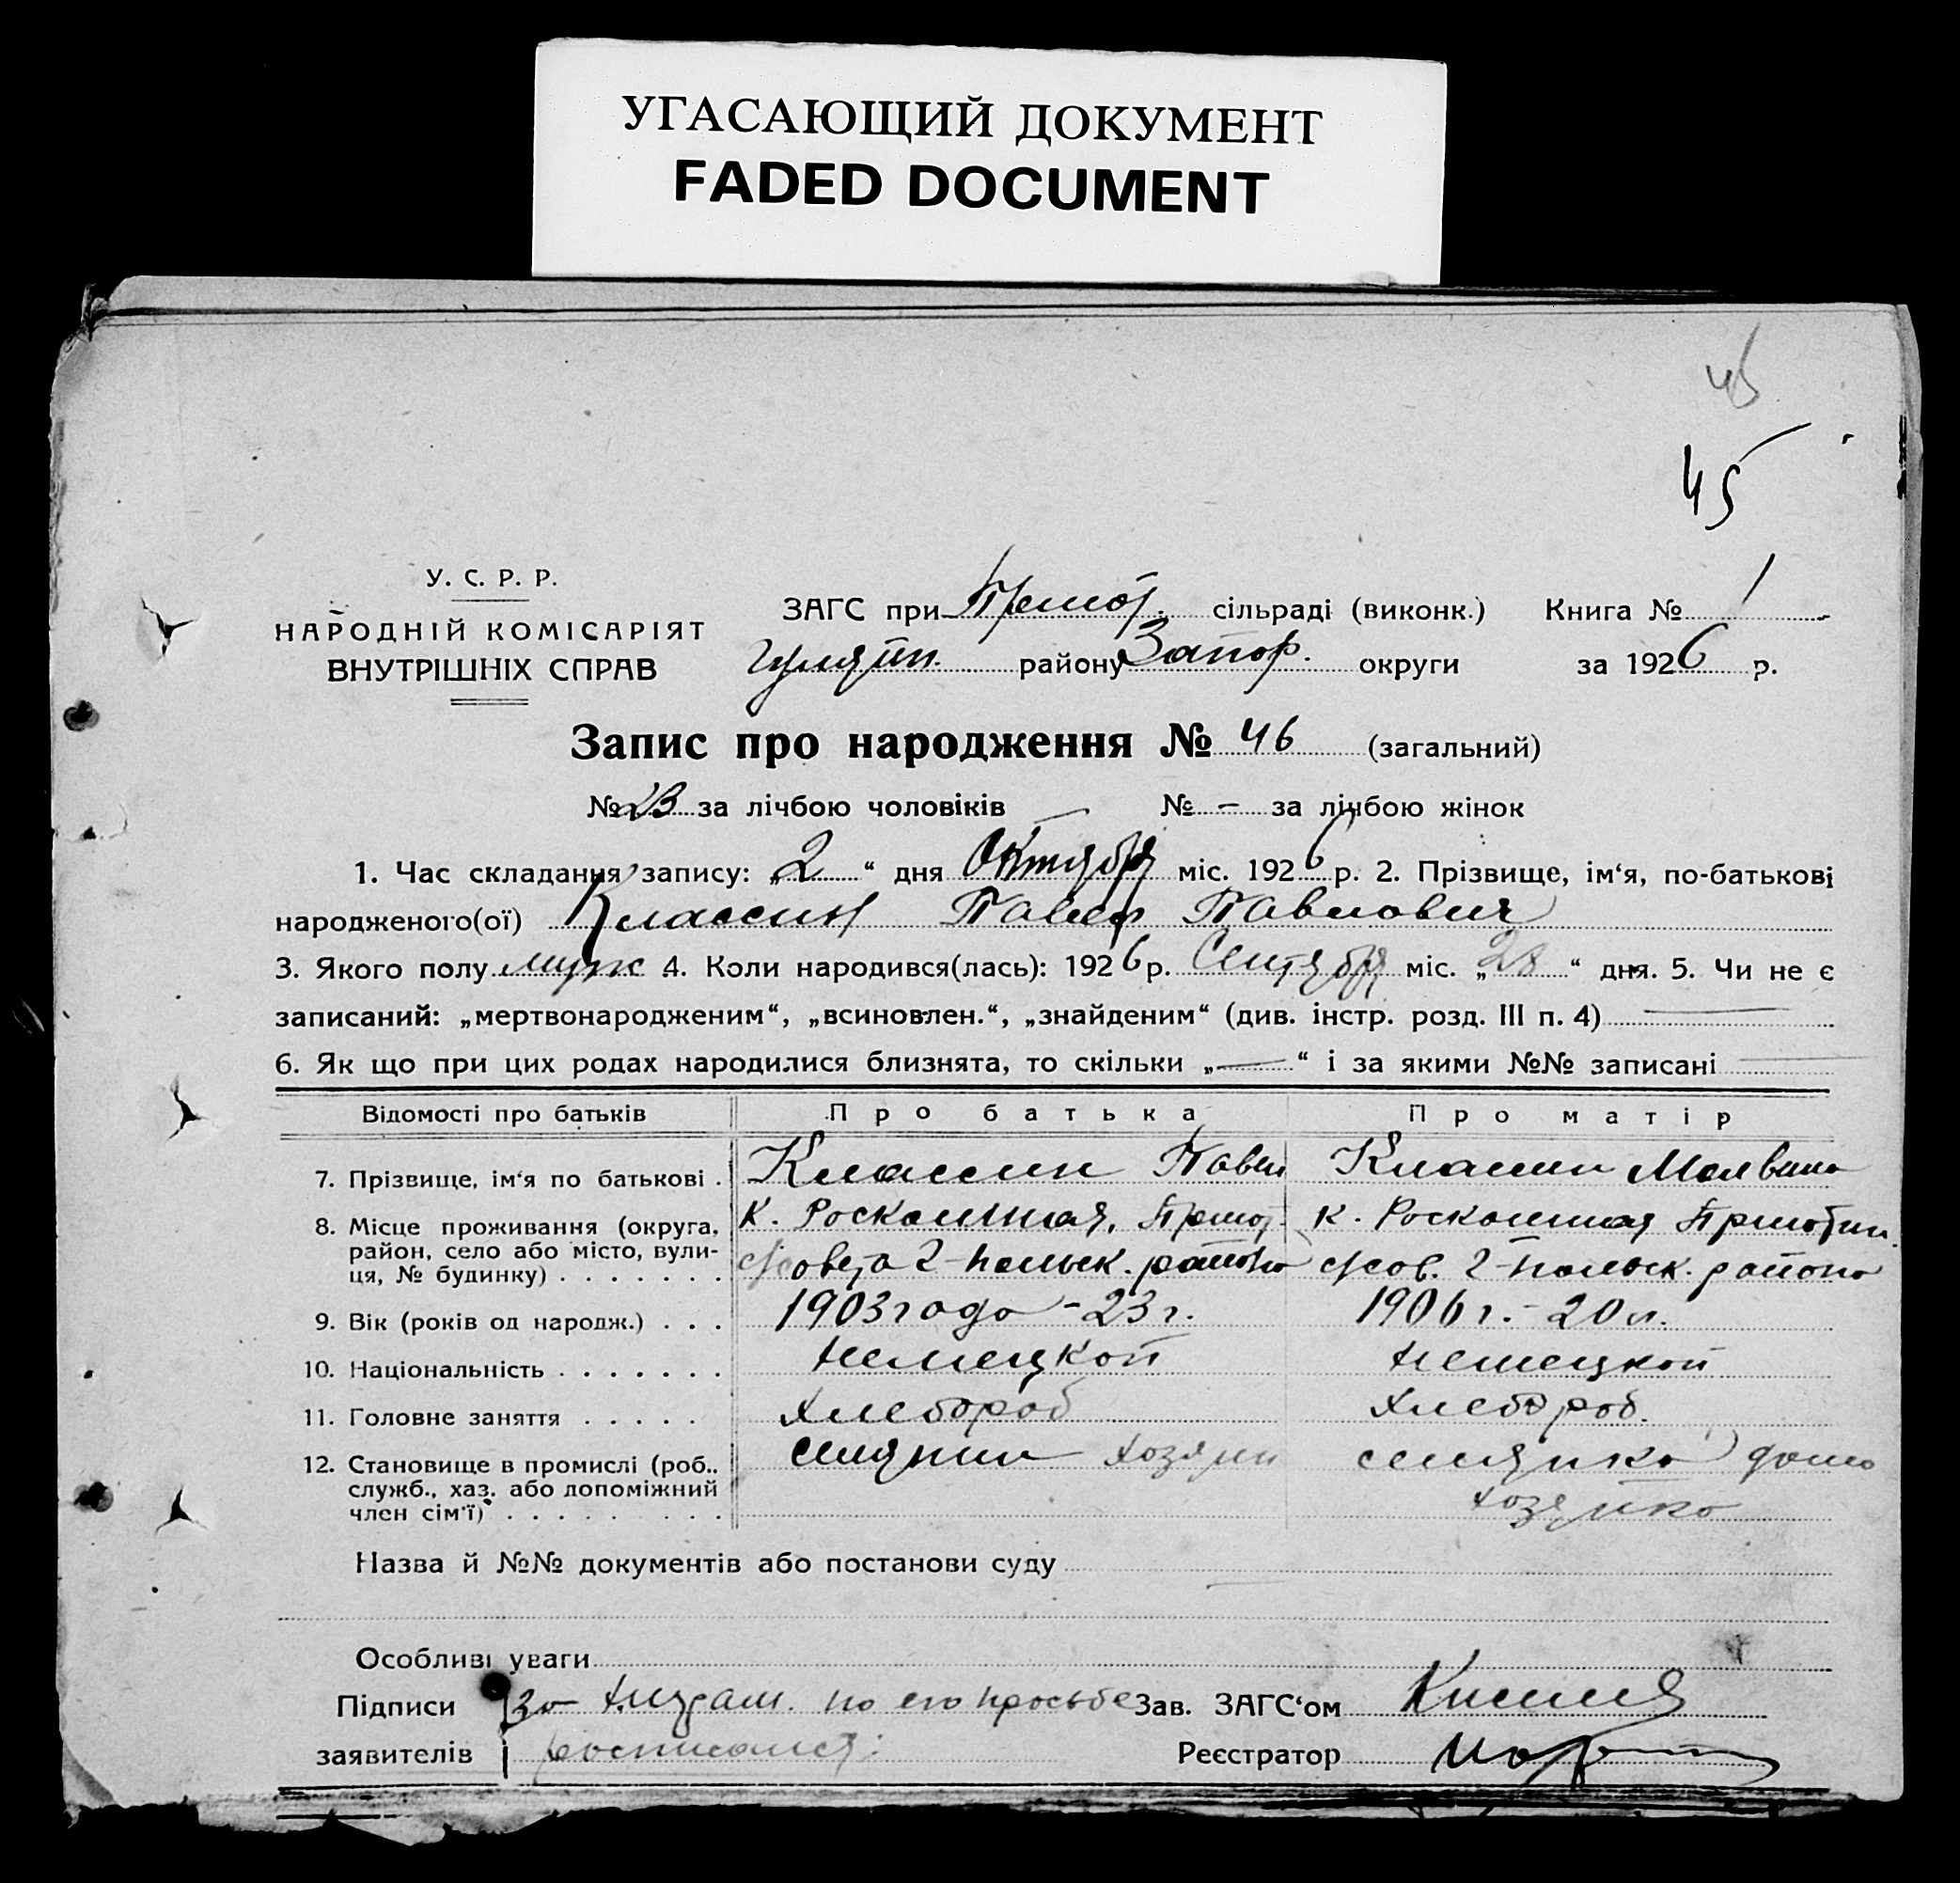 УГАСАЮЩИЙ ДОКУМЕНТ
FADED DOCUMENT
45
45
У. С. Р. Р.
НАРОДНІЙ КОМІСАРІЯТ
ВНУТРІШНІХ СПРАВ
ЗАГС при сільраді (виконк.) Книга № 1
Гуляйп. району Запор. округи за 1926 р.
Запис про народження № 46 (загальний)
№ 23 за лічбою чоловіків № – за лічбою жінок
1. Час складання запису: „2“ дня Октября міс. 1926 р. 2. Прізвище, ім‘я, по-батькові
народженого(ої) Классин Павел Павлович
3. Якого полу муж 4. Коли народився(лась): 1926 р. Сентября міс. „28“ дня. 5. Чи не є
записаний: „мертвонародженим“, „всиновлен.“, „знайденим“ (див. інстр. розд. III п. 4) —
6. Як що при цих родах народилися близнята, то скільки „—“ і за якими №№ записані —
Відомості про батьків Про батька Про матір
7. Прізвище, ім‘я по батькові . Классин Павел Классин Мальвина
8. Місце проживання (округа, к. Роскошная, к. Роскошная
район, село або місто, вули- с/совета 2-Польск. района с/сов. 2-Польск. района
ця, № будинку) . . . . . . .
9. Вік (років од народж.) . . . 1903 года - 23 г. 1906 г. - 20 л.
10. Національність . . . . . . . Немецкой Немецкой
11. Головне заняття . . . . . Хлебороб Хлебороб.
12. Становище в промислі (роб., селянин хозяин селянка домо
служб., хаз. або допоміжний хозяйка
член сім‘ї) . . . . . . . . .
Назва й №№ документів або постанови суду —
Особливі уваги
Підписи За по его просьбе Зав. ЗАГС‘ом
заявителів росписался: Реєстратор